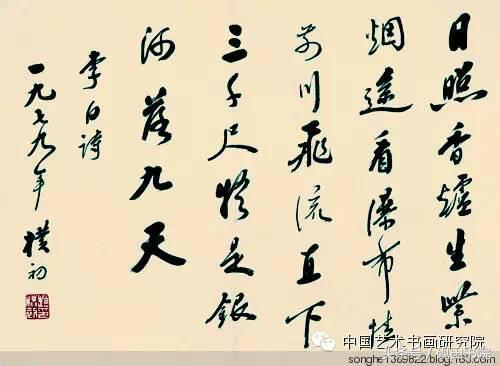 日照香爐生紫
烟遥看瀑布挂
前川飛流直下
三千尺疑是銀
河落九天
李白詩
一九七九年 樸初
中国艺术书画研究院
songhe1389822.blog.163.com